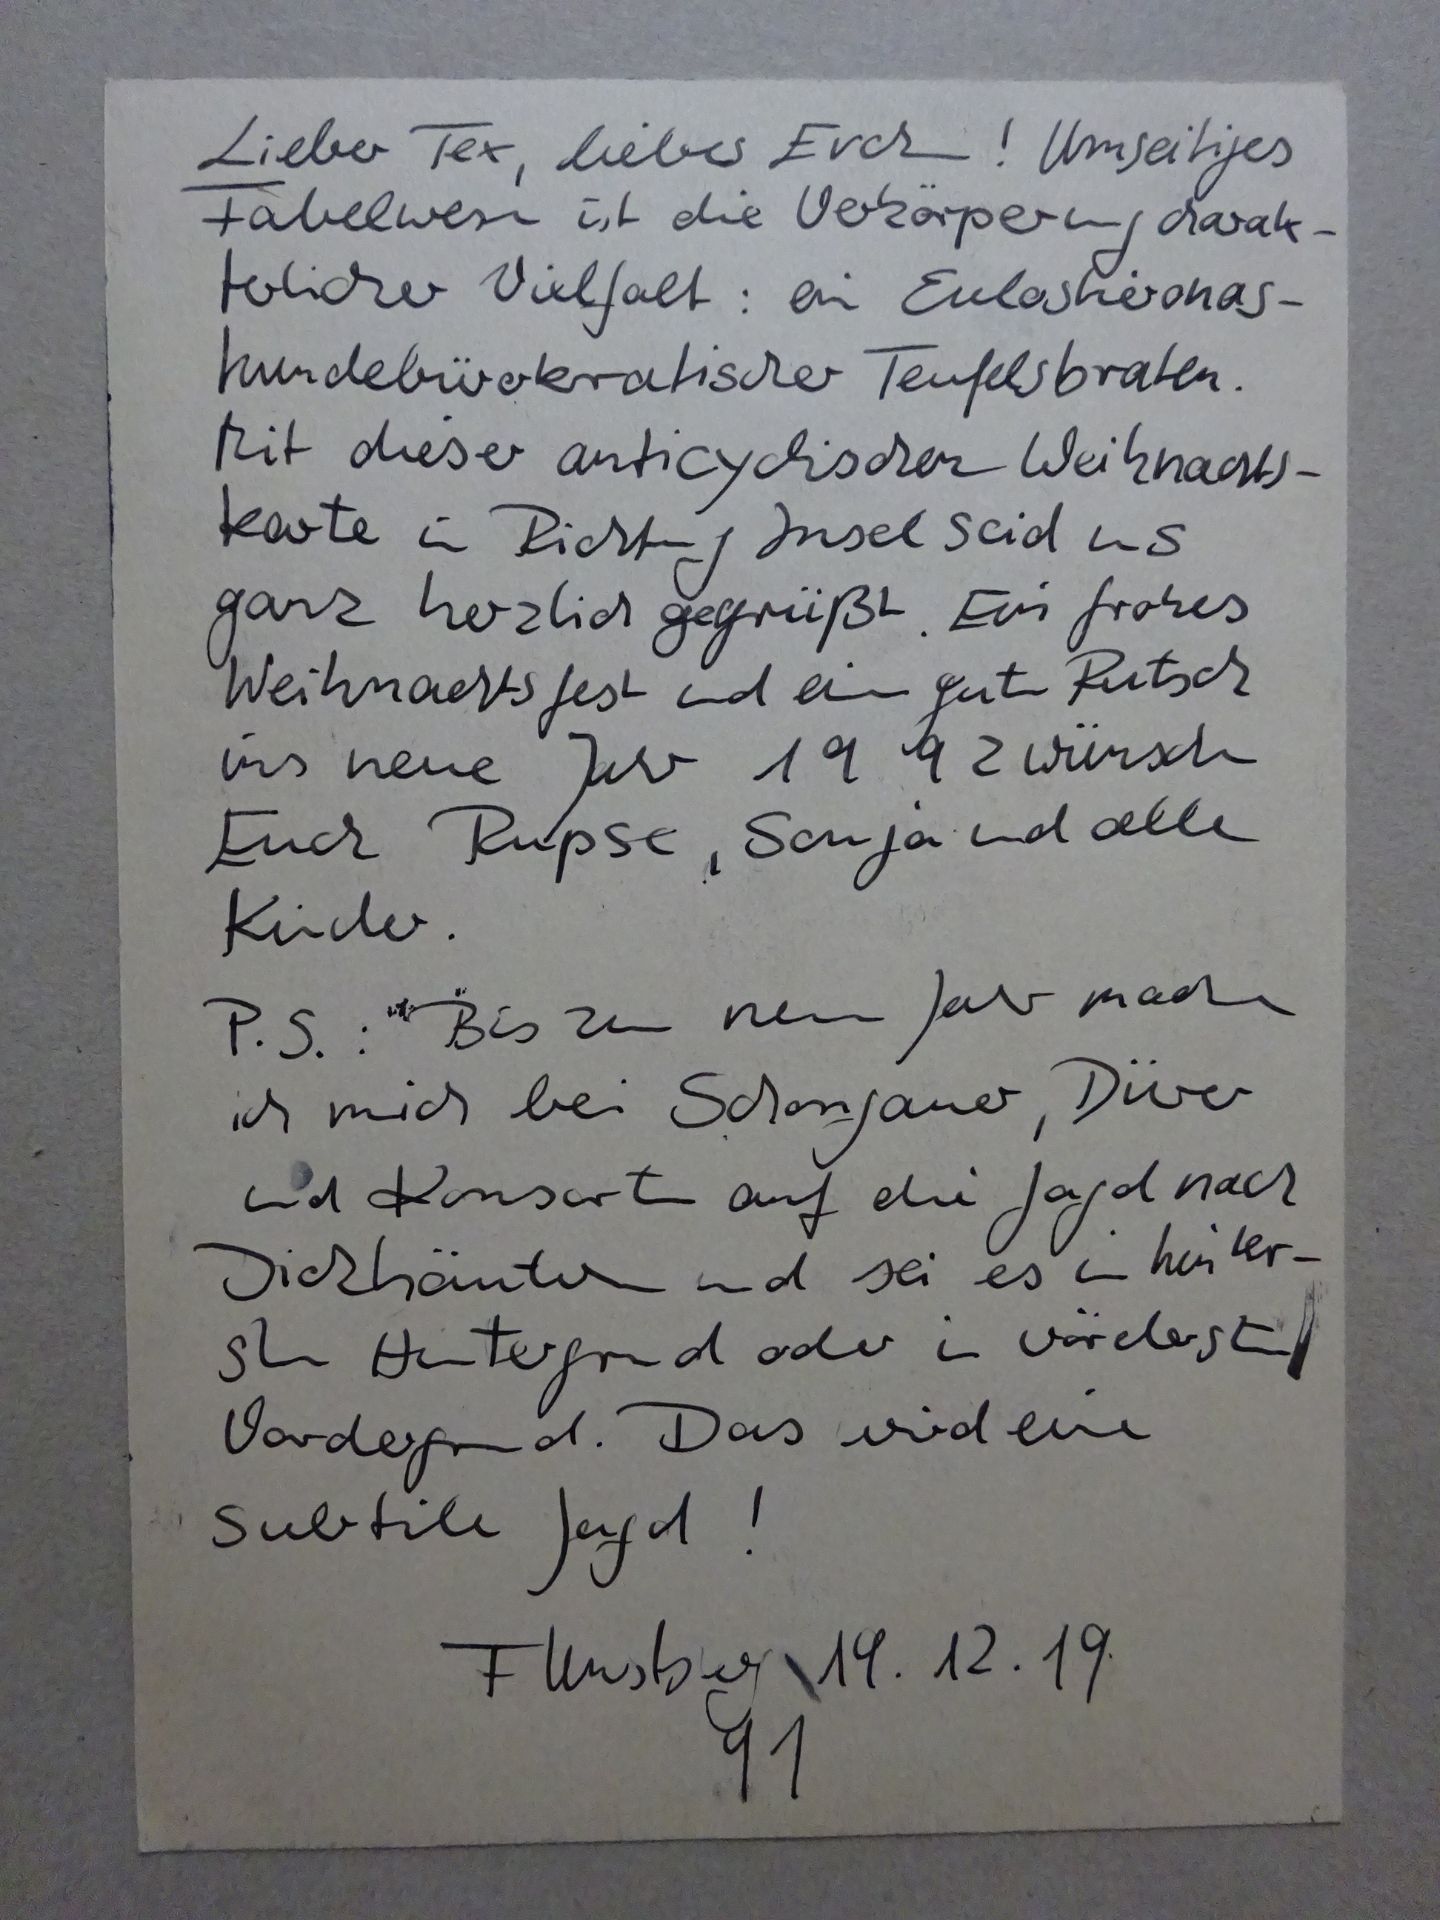 Lieber Tex, liebes Evch! Umseitiges
Fabelwesen ist die Verkörperung charak-
terlicher Vielfalt: ein
hundebürokratischer Teufelsbraten.
Mit dieser anticyclischen Weihnachts-
karte in Richtung Insel seid uns
ganz herzlich gegrüßt. Ein frohes
Weihnachtsfest und einen guten Rutsch
ins neue Jahr 1992 wünschen
Euch Rupse, Sonja und alle
Kinder.
P.S.: Bis zum neuen Jahr mache
ich mich bei Schongauer, Dürer
und Konsorten auf die Jagd nach
Dickhäutern und sei es im hinter-
sten Hintergrund oder im vördersten
Vordergrund. Das wird eine
subtile Jagd!
Flensburg 19. 12. 19
91